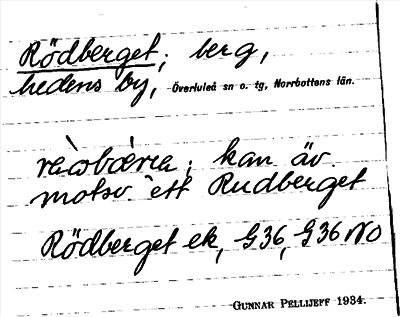 Rödberget; berg,
hedens by, Överluleå sn o. tg, Norrbottens län.
kan äv.
motsv. ett Rudberget
Rödberget ek, G36, G36 NO
GUNNAR PELLIJEFF 1934.